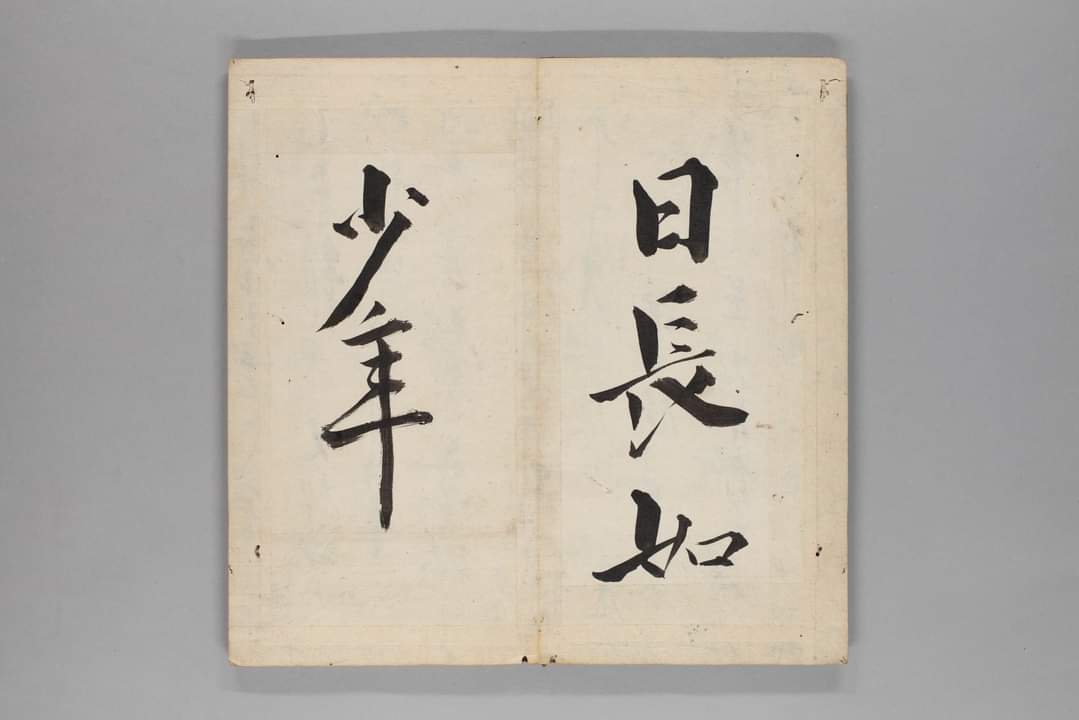 日長如
少年